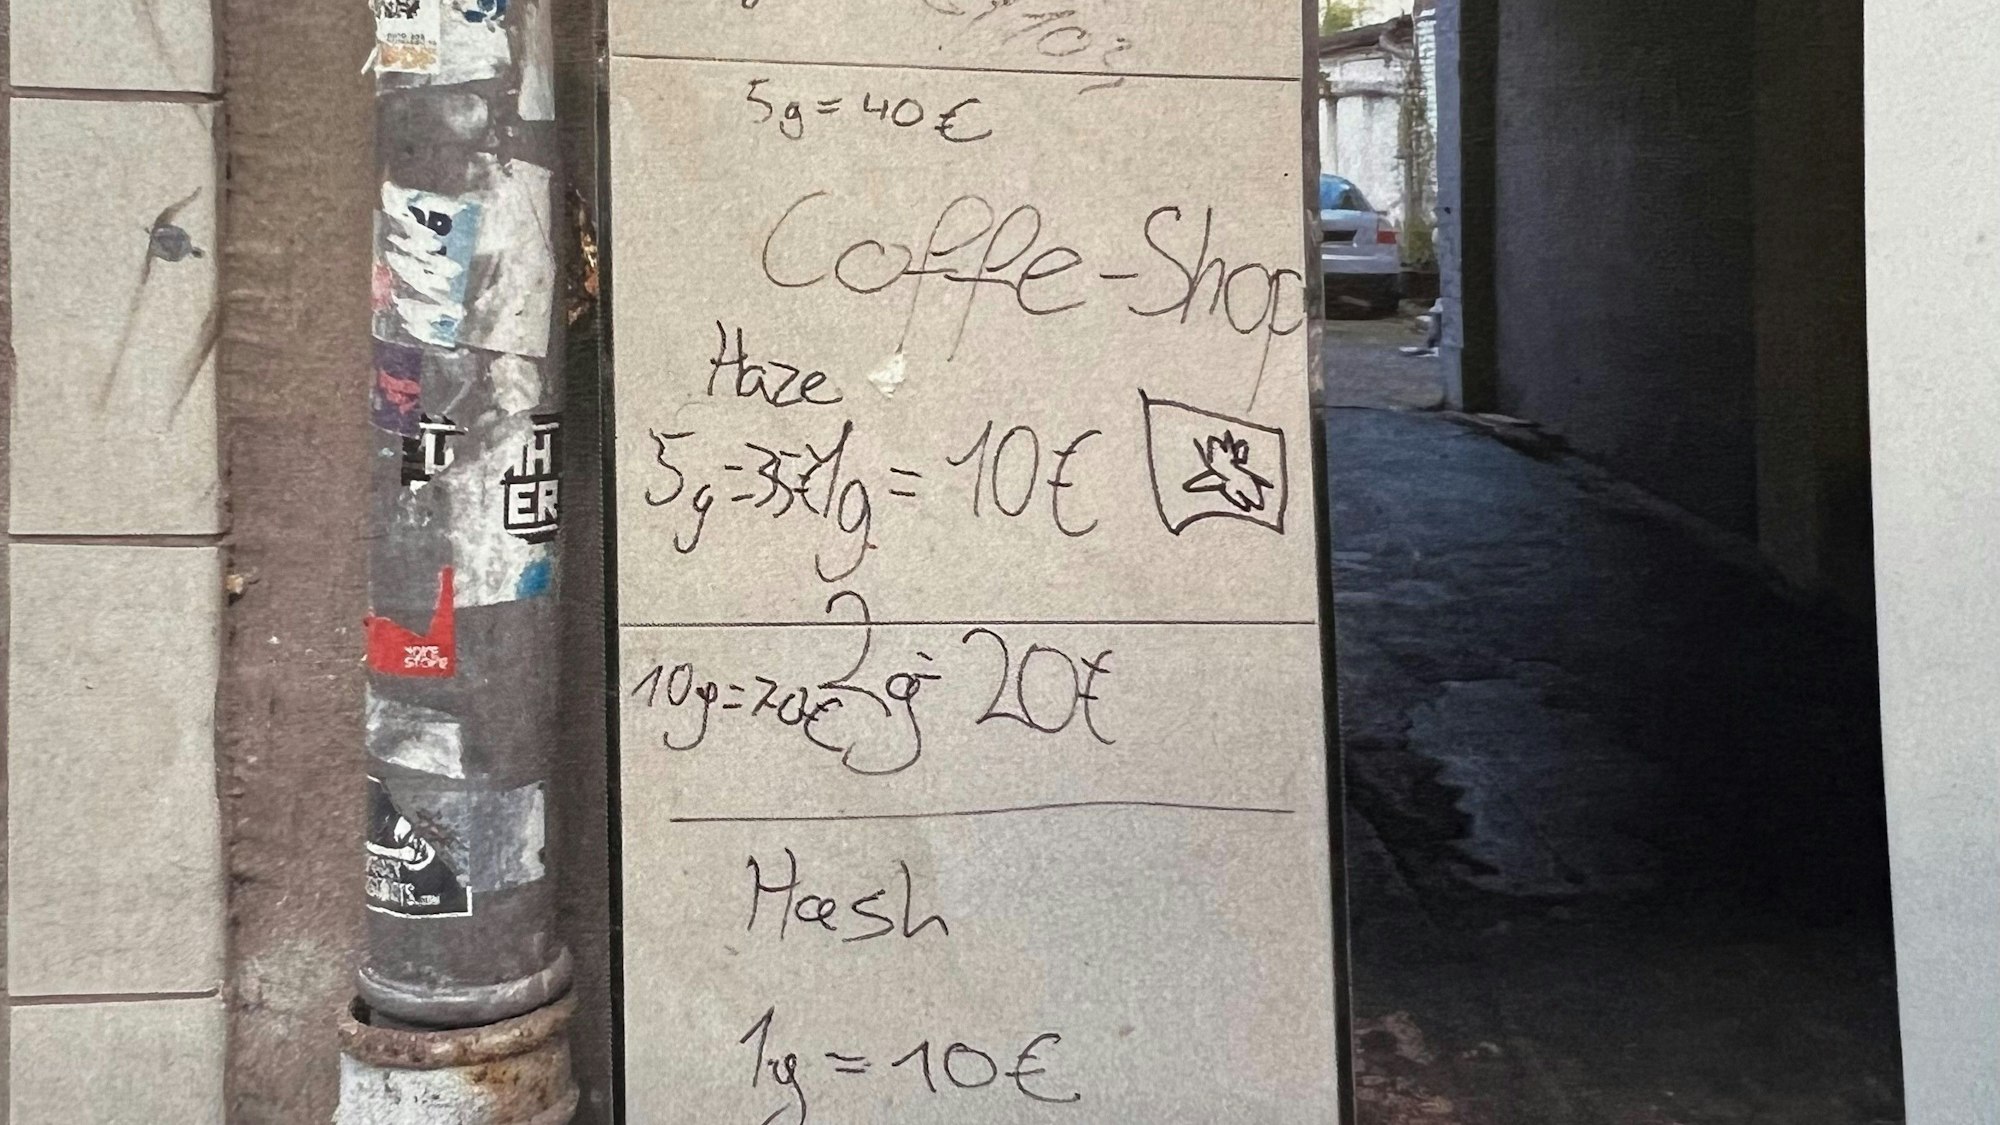 5g = 40€
Coffe-Shop
Haze
5g = 35€ 1g = 10€
10g = 70€ 2g = 20€
Hash
1g = 10€
TH
ER